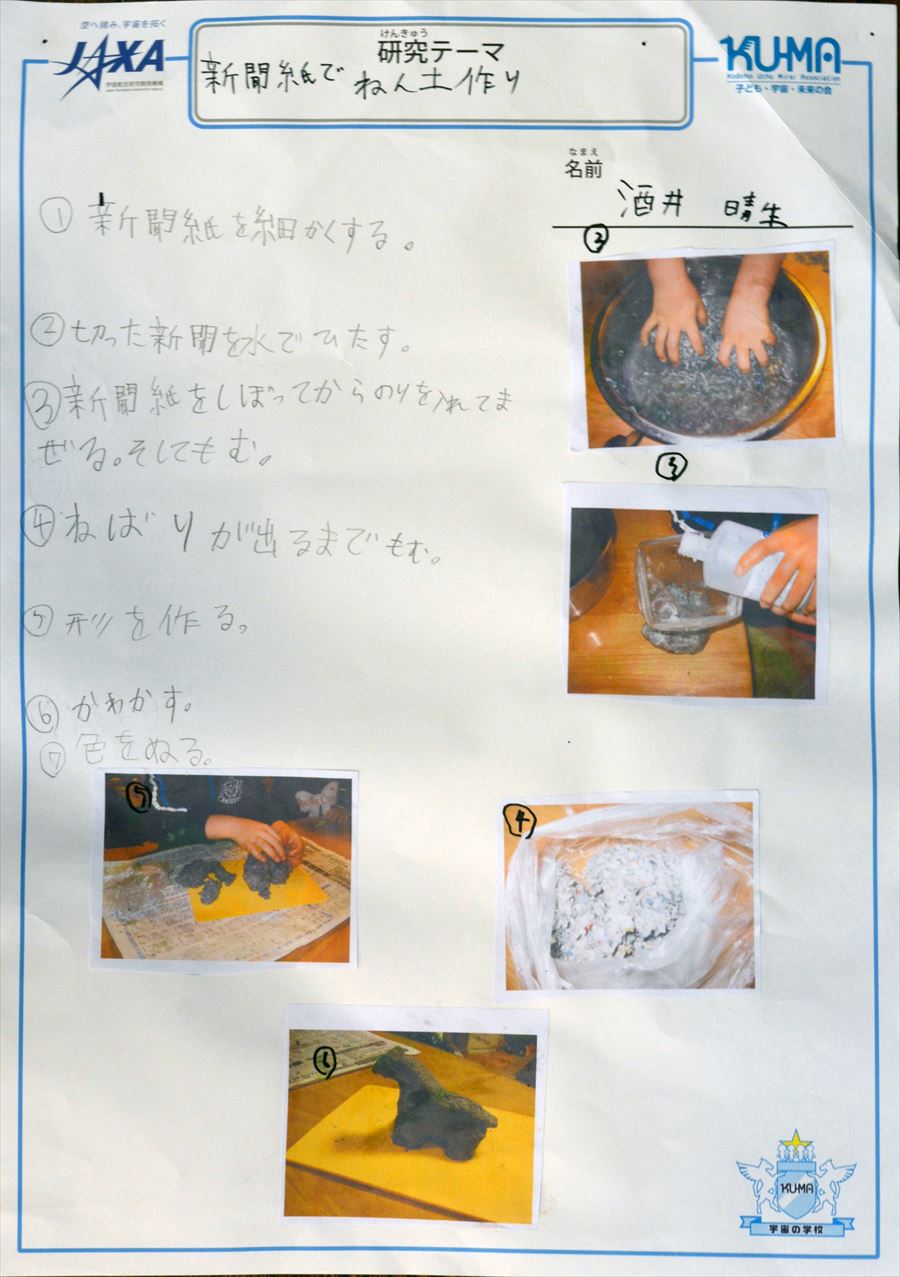 空へ挑み、宇宙を拓く
JAXA
宇宙航空研究開発機構
Japan Aerospace Exploration Agency
けんきゅう
研究テーマ
新聞紙で ねん土作り
KU-MA
Kodomo Uchu Mirai Association
子ども・宇宙・未来の会
なまえ
名前
酒井 晴生
① 新聞紙を細かくする。
② 切った新聞を水でひたす。
③ 新聞紙をしぼってからのりを入れてま
ぜる。そしてもむ。
④ ねばりが出るまでもむ。
⑤ 形を作る。
⑥ かわかす。
⑦ 色をぬる。
②
③
⑤
④
⑥
KU-MA
宇宙の学校